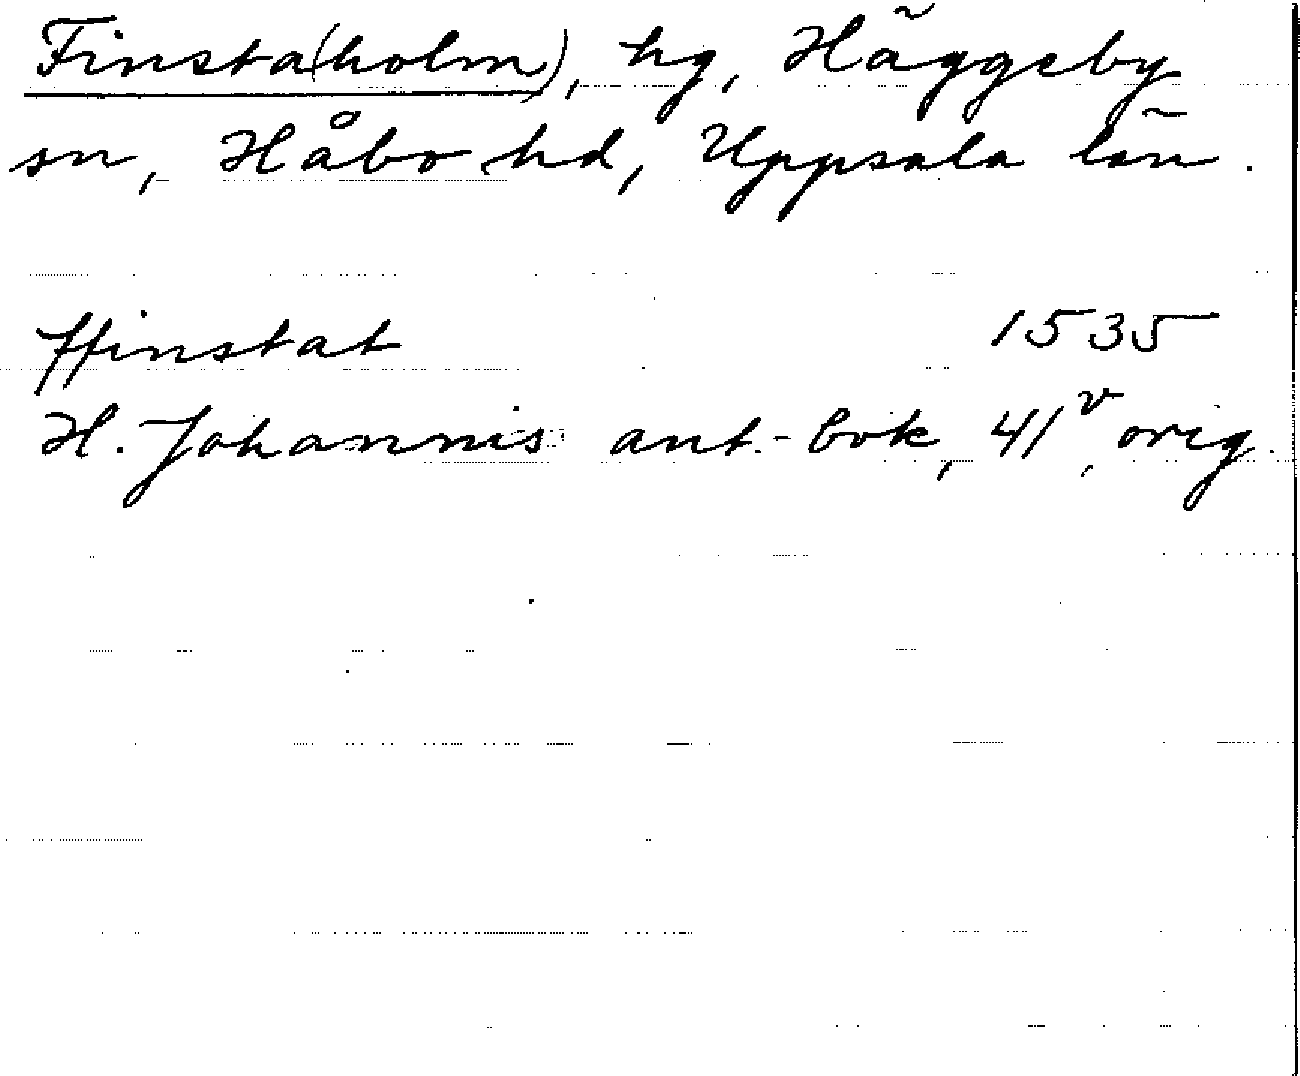 Finsta(holm), hg, Häggeby
sn, Håbo hd, Uppsala län.
ffinstat 1535
H. Johannis ant.-bok, 41v, orig.